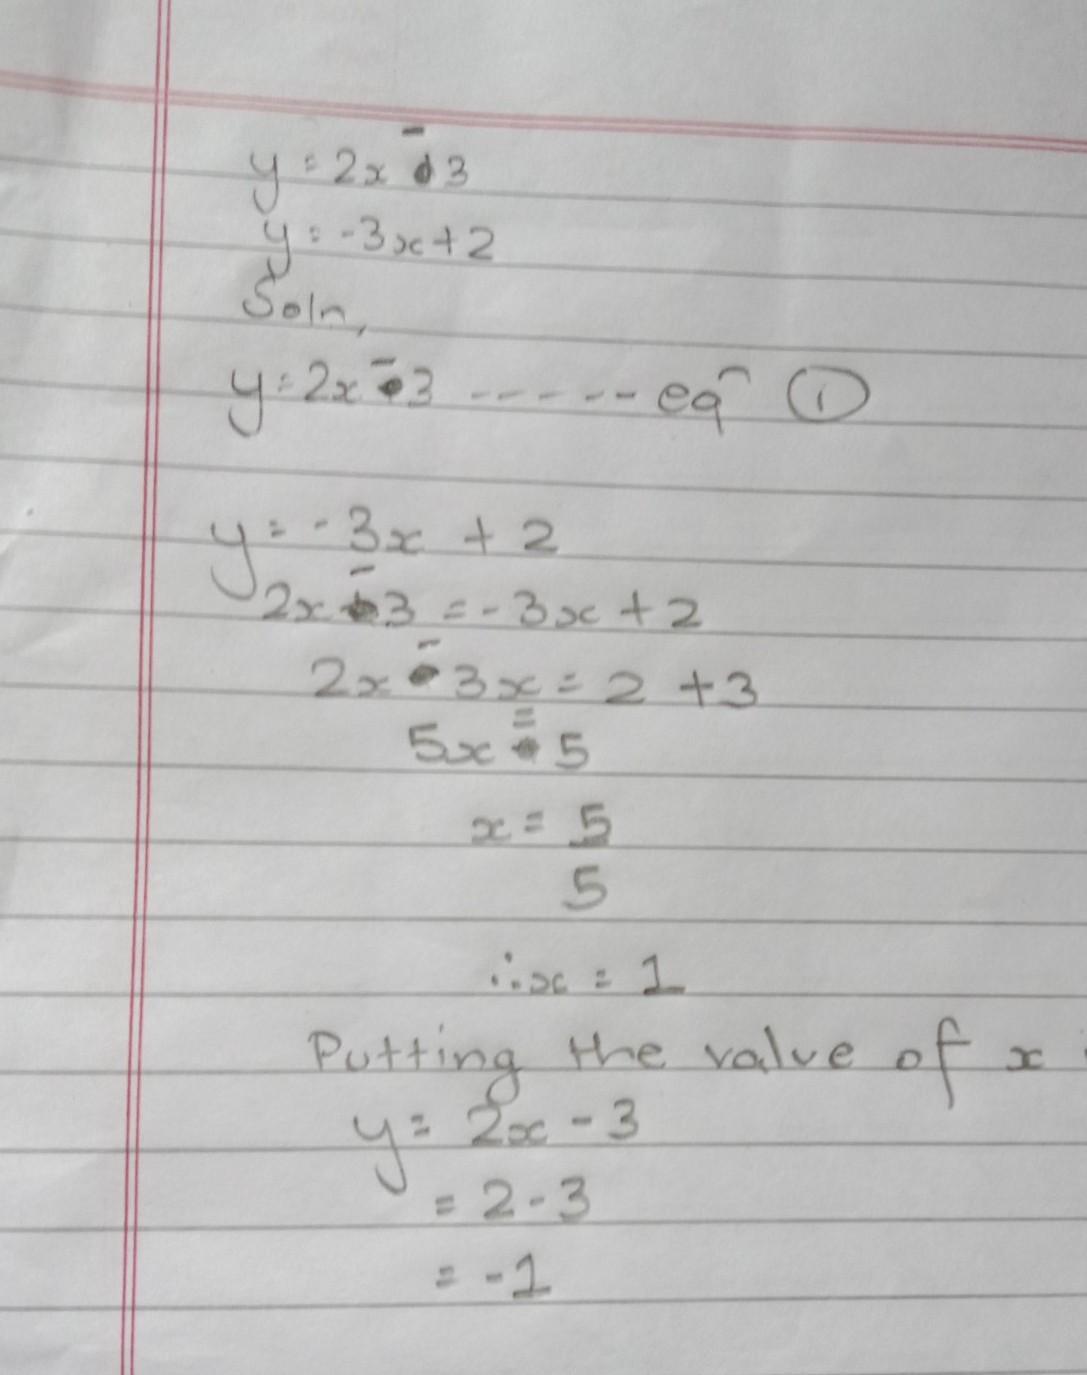 y = 2x - 3
y = -3x + 2
Soln,
y = 2x - 3 ------ eqn ①
y = -3x + 2
2x - 3 = -3x + 2
2x - 3x = 2 + 3
5x = 5
x = 5
5
∴ x = 1
Putting the value of x
y = 2x - 3
= 2 - 3
= -1